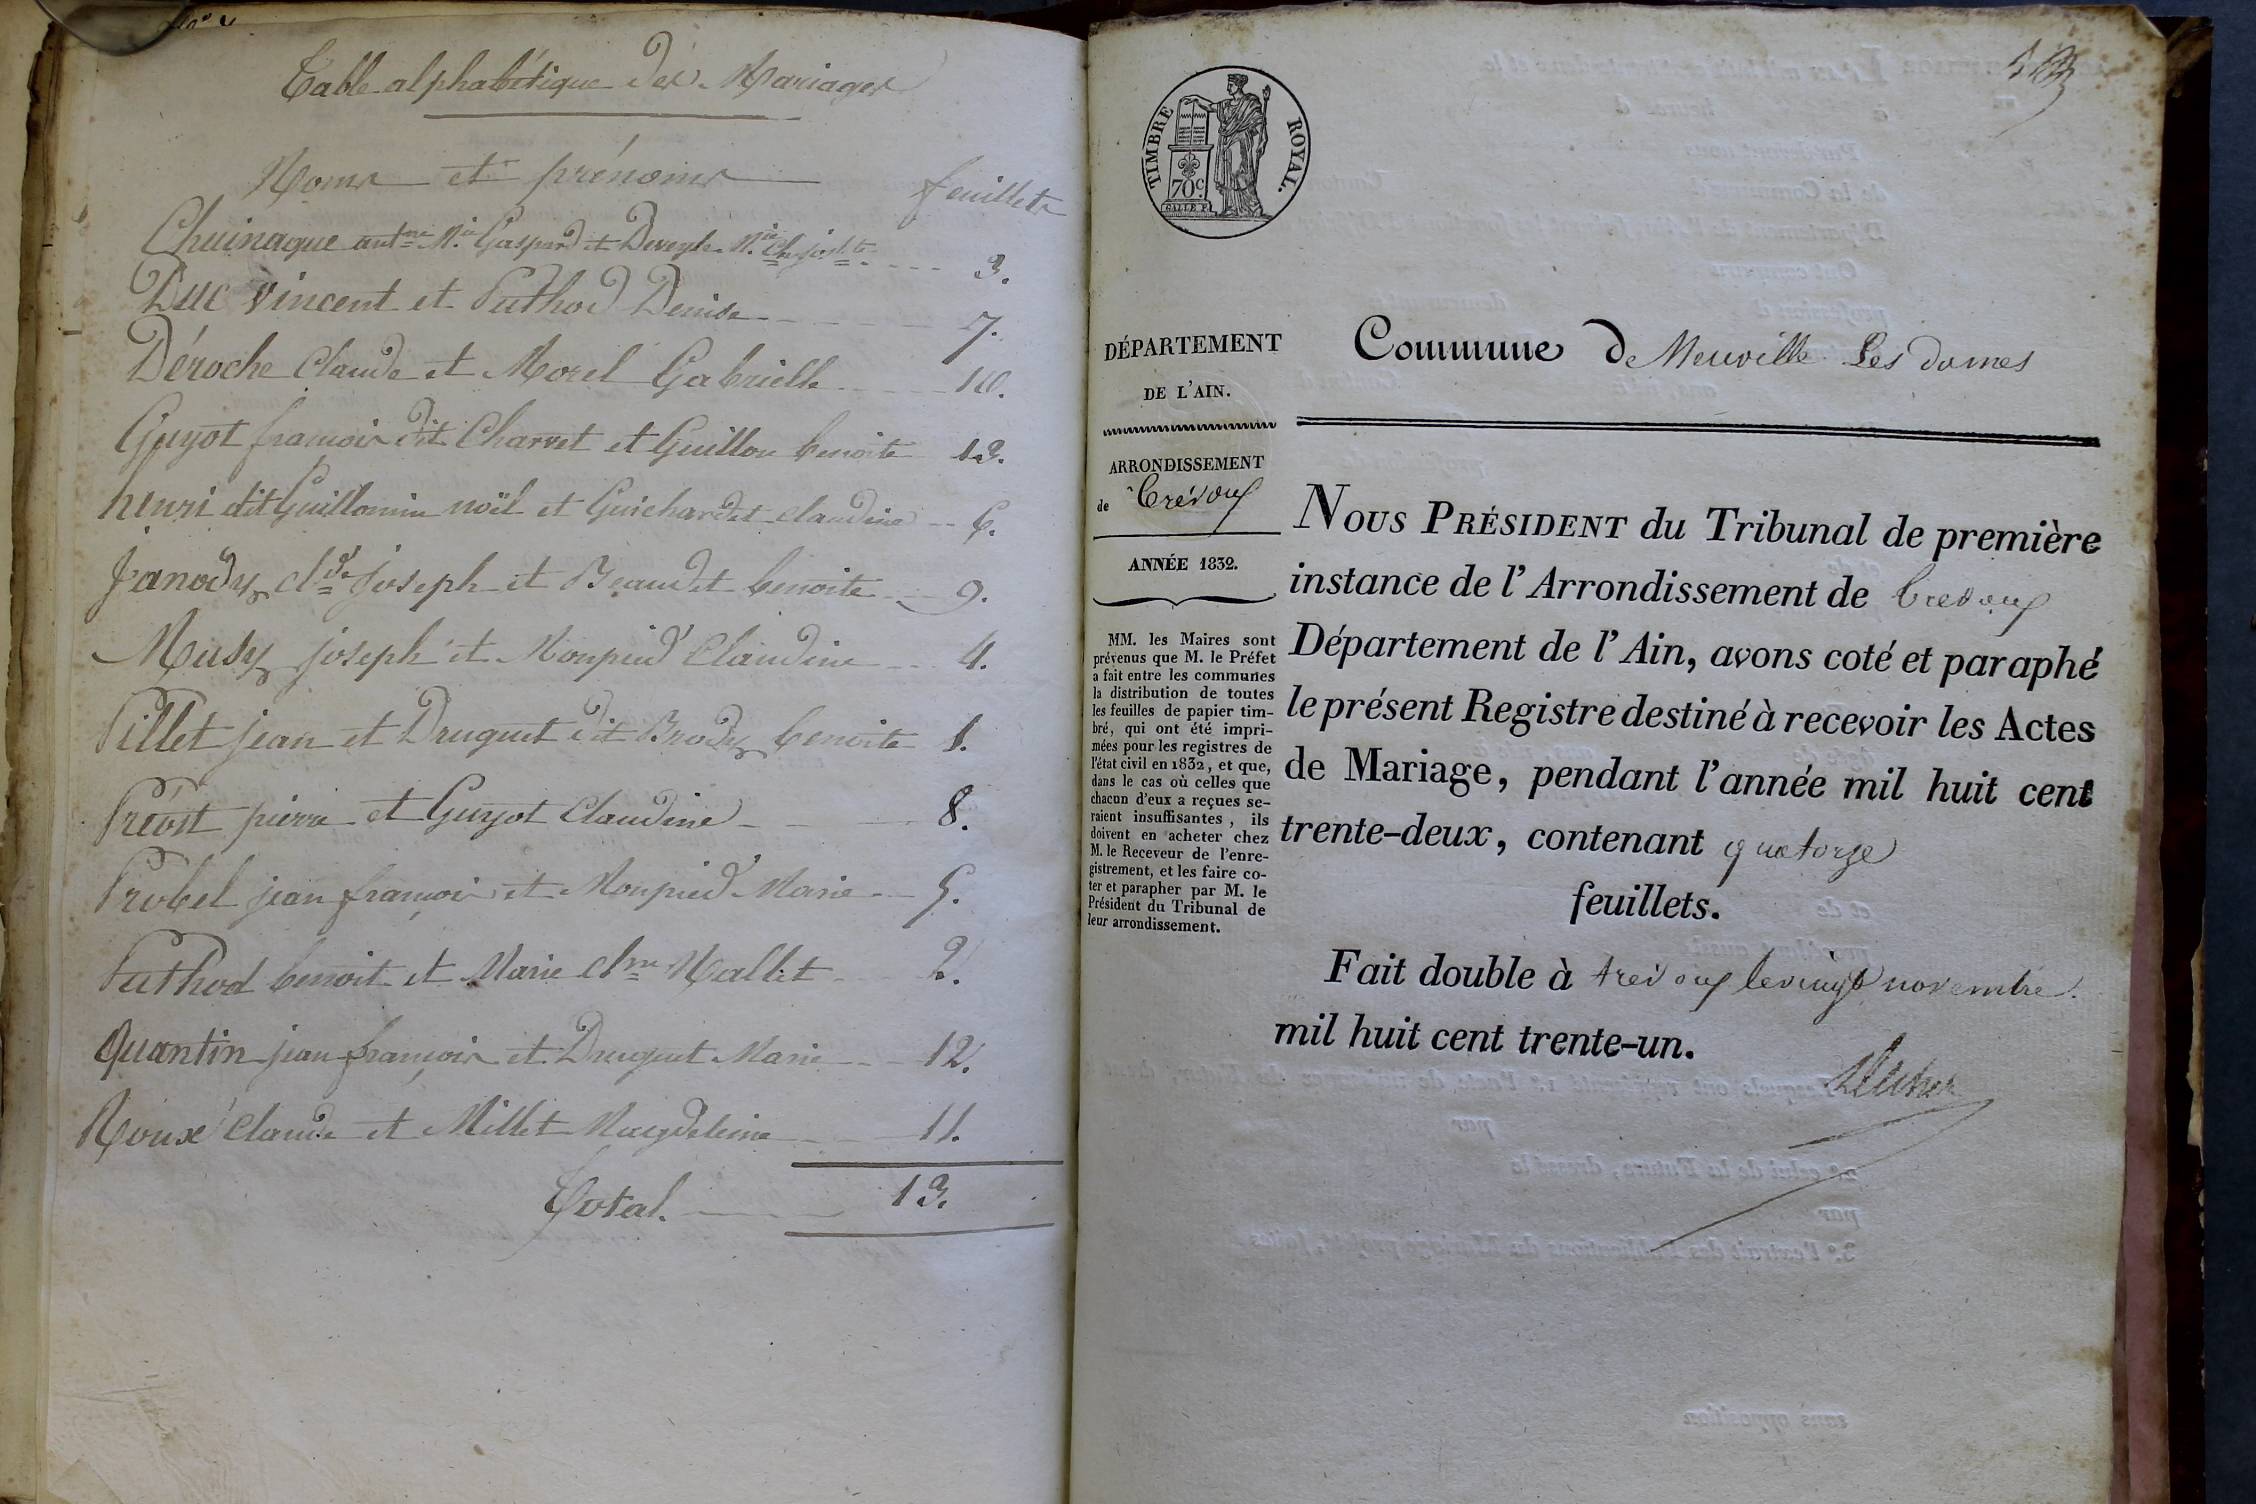 Table alphabétique des Mariages
Noms et prénoms feuillets
Chuinague antne Mie Gaspard et Deveyle Mie 3.
Duc Vincent et Puthod Denise 7.
Déroche Claude et Morel Gabrielle 10.
Guyot françois dit Charvet et Guillon benoite 13.
henri dit Guillomin noël et Guichardet claudine 6.
Janody clde joseph et Beaudet benoite 9.
Musy joseph et Monpied Claudine 4.
Pillet jean et Druguet dit Brody benoite 1.
Prévost pierre et Guyot Claudine 8.
Probel jean françois et Monpied Marie 5.
Puthod benoit et Marie clne Nallet 2.
Quantin jean françois et Druguet Marie 12.
Roux Claude et Millet Magdeleine 11.
Total. 13.
TIMBRE ROYAL.
70c.
DÉPARTEMENT
DE L'AIN.
ARRONDISSEMENT
de Trévoux
ANNÉE 1832.
MM. les Maires sont
prévenus que M. le Préfet
a fait entre les communes
la distribution de toutes
les feuilles de papier tim-
bré, qui ont été impri-
mées pour les registres de
l'état civil en 1832, et que,
dans le cas où celles que
chacun d'eux a reçues se-
raient insuffisantes, ils
doivent en acheter chez
M. le Receveur de l'enre-
gistrement, et les faire co-
ter et parapher par M. le
Président du Tribunal de
leur arrondissement.
Commune de Neuville Les dames
NOUS PRÉSIDENT du Tribunal de première
instance de l'Arrondissement de trevoux
Département de l'Ain, avons coté et paraphé
le présent Registre destiné à recevoir les Actes
de Mariage, pendant l'année mil huit cent
trente-deux, contenant quatorze
feuillets.
Fait double à trevoux le vingt novembre
mil huit cent trente-un.